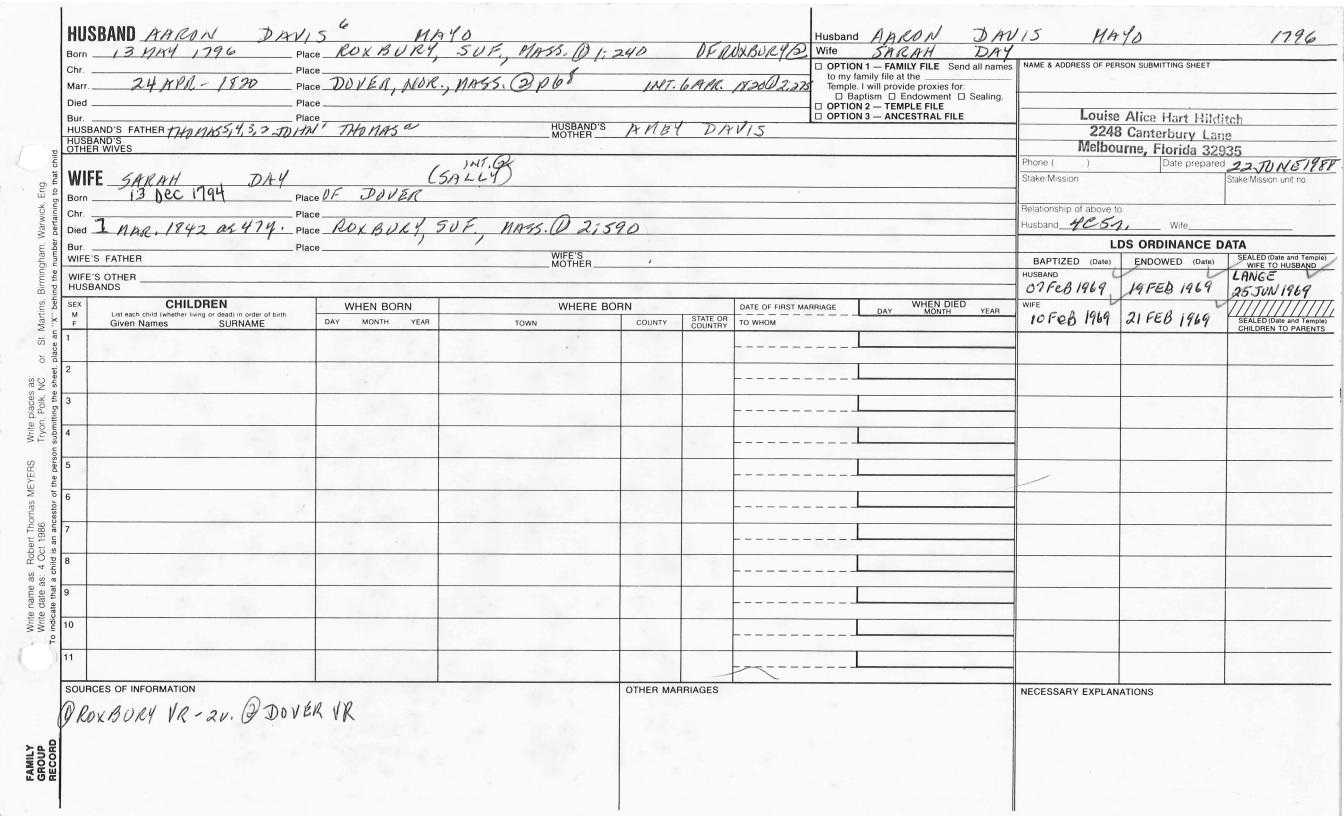 HUSBAND AARON DAVIS 6 MAYO
Born 13 MAY 1796 Place ROXBURY, SUF, MASS. ① 1:240 OF ROXBURY ②
Chr. Place
Marr. 24 APR - 1820 Place DOVER, NOR., MASS. ② p68 INT. 6 APR. 1820 ① 2,275
Died Place
Bur. Place
HUSBAND'S FATHER THOMAS 5,4,3,2 JOHN 1 THOMAS a HUSBAND'S MOTHER AMEY DAVIS
HUSBAND'S OTHER WIVES
WIFE SARAH DAY (SALLY) INT. ②
Born 13 Dec 1794 Place OF DOVER
Chr. Place
Died 1 MAR. 1842 as 47y. Place ROXBURY, SUF, MASS. ① 2:590
Bur. Place
WIFE'S FATHER WIFE'S MOTHER
WIFE'S OTHER HUSBANDS
Husband AARON DAVIS MAYO 1796
Wife SARAH DAY
☐ OPTION 1 — FAMILY FILE Send all names
to my family file at the
Temple. I will provide proxies for:
☐ Baptism ☐ Endowment ☐ Sealing.
☐ OPTION 2 — TEMPLE FILE
☐ OPTION 3 — ANCESTRAL FILE
NAME & ADDRESS OF PERSON SUBMITTING SHEET
Louise Alice Hart Hilditch
2248 Canterbury Lane
Melbourne, Florida 32935
Phone ( ) Date prepared 22 JUNE 1988
Stake Mission Stake Mission unit no.
Relationship of above to:
Husband 4C5r. Wife
LDS ORDINANCE DATA
BAPTIZED (Date) ENDOWED (Date) SEALED (Date and Temple) WIFE TO HUSBAND
HUSBAND LANGE
07 FEB 1969 19 FEB 1969 25 JUN 1969
WIFE
10 FEB 1969 21 FEB 1969 SEALED (Date and Temple) CHILDREN TO PARENTS
SEX M F CHILDREN WHEN BORN WHERE BORN DATE OF FIRST MARRIAGE WHEN DIED
List each child (whether living or dead) in order of birth
Given Names SURNAME DAY MONTH YEAR TOWN COUNTY STATE OR COUNTRY TO WHOM DAY MONTH YEAR
1
2
3
4
5
6
7
8
9
10
11
SOURCES OF INFORMATION
① ROXBURY VR - 2v. ② DOVER VR
OTHER MARRIAGES
NECESSARY EXPLANATIONS
Write name as: Robert Thomas MEYERS Write places as:
Write date as: 4 Oct 1986 Tryon, Polk, NC or St. Martins, Birmingham, Warwick, Eng.
To indicate that a child is an ancestor of the person submitting the sheet, place an "X" behind the number pertaining to that child.
FAMILY
GROUP
RECORD